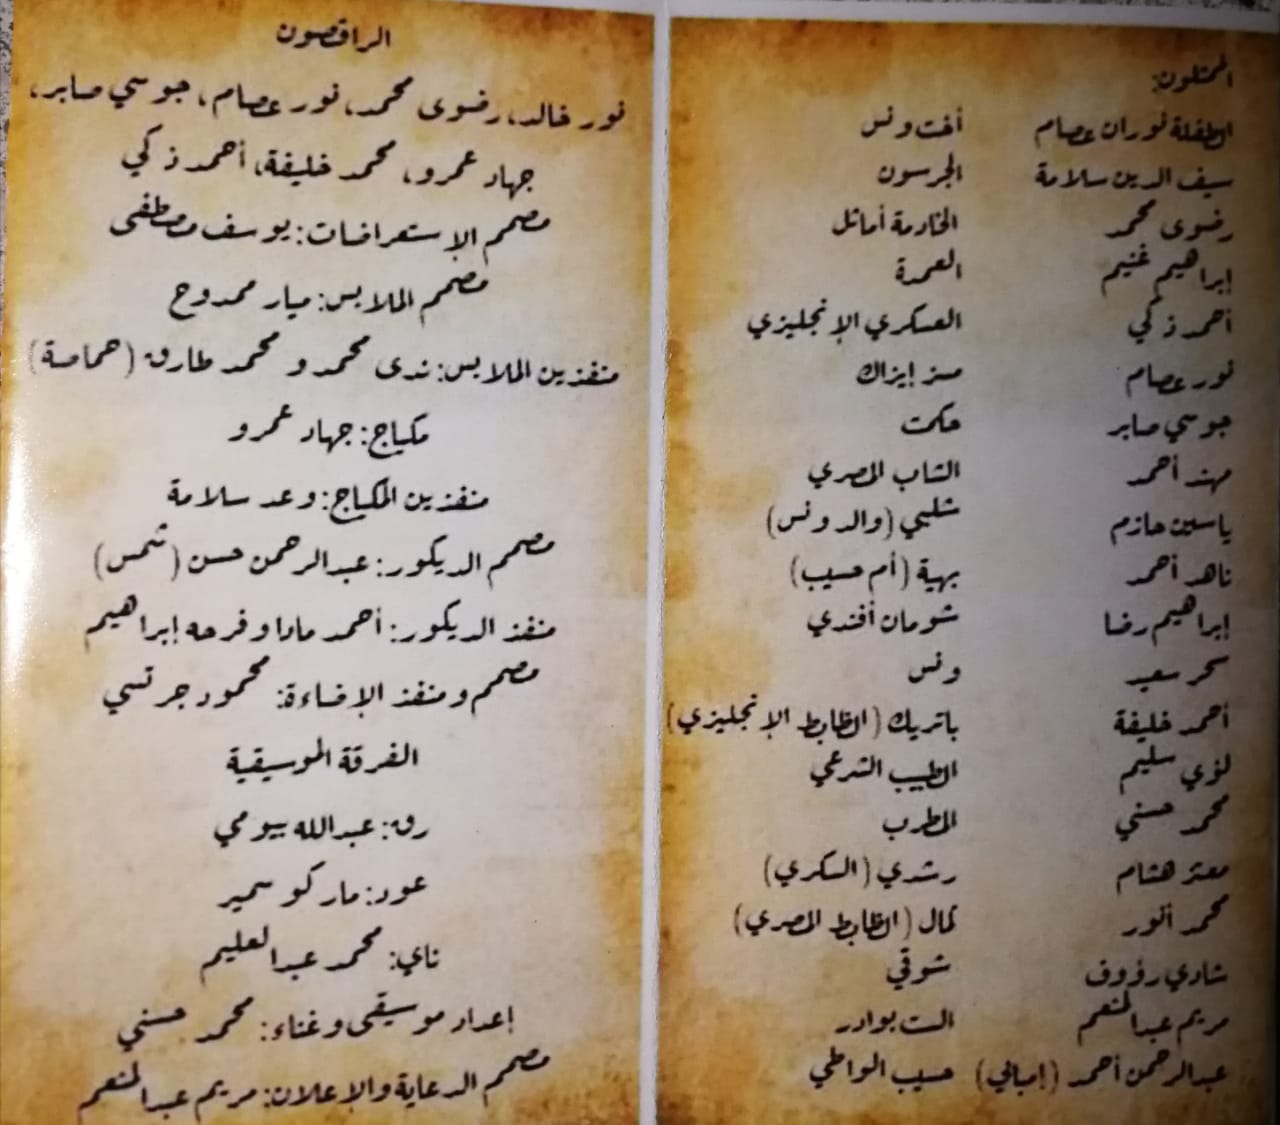 الممثلون:
الطفلة نوران عصام أخت ونس
سيف الدين سلامة الجرسون
رضوى محمد الخادمة أماثل
إبراهيم غنيم العمدة
أحمد زكي العسكري الإنجليزي
نور عصام مسز إيزاك
جوسي صابر حكمت
مهند أحمد الشاب المصري
ياسين حازم شلبي (والد ونس)
ناهد أحمد بهية (أم حسيب)
إبراهيم رضا شومان أفندي
سحر سعيد ونس
أحمد خليفة باتريك (الظابط الإنجليزي)
لؤي سليم الطبيب الشرعي
محمد حسني المطرب
معتز هشام رشدي (السكري)
محمد أنور كمال (الظابط المصري)
شادي رؤوف شوقي
مريم عبدالمنعم الست بوادر
عبدالرحمن أحمد (إمبابي) حسيب الواطي
الراقصون
نور خالد، رضوى محمد، نور عصام، جوسي صابر،
جهاد عمرو، محمد خليفة، أحمد زكي
مصمم الإستعراضات: يوسف مصطفى
مصمم الملابس: ميار ممدوح
منفذين الملابس: ندى محمد و محمد طارق (حماصة)
مكياج: جهاد عمرو
منفذين المكياج: وعد سلامة
مصمم الديكور: عبدالرحمن حسن (شمس)
منفذ الديكور: أحمد مادا و فرحه إبراهيم
مصمم و منفذ الإضاءة: محمود جرتسي
الفرقة الموسيقية
رق: عبدالله بيومي
عود: ماركو سمير
ناي: محمد عبدالعليم
إعداد موسيقى و غناء: محمد حسني
مصمم الدعاية والإعلان: مريم عبدالمنعم